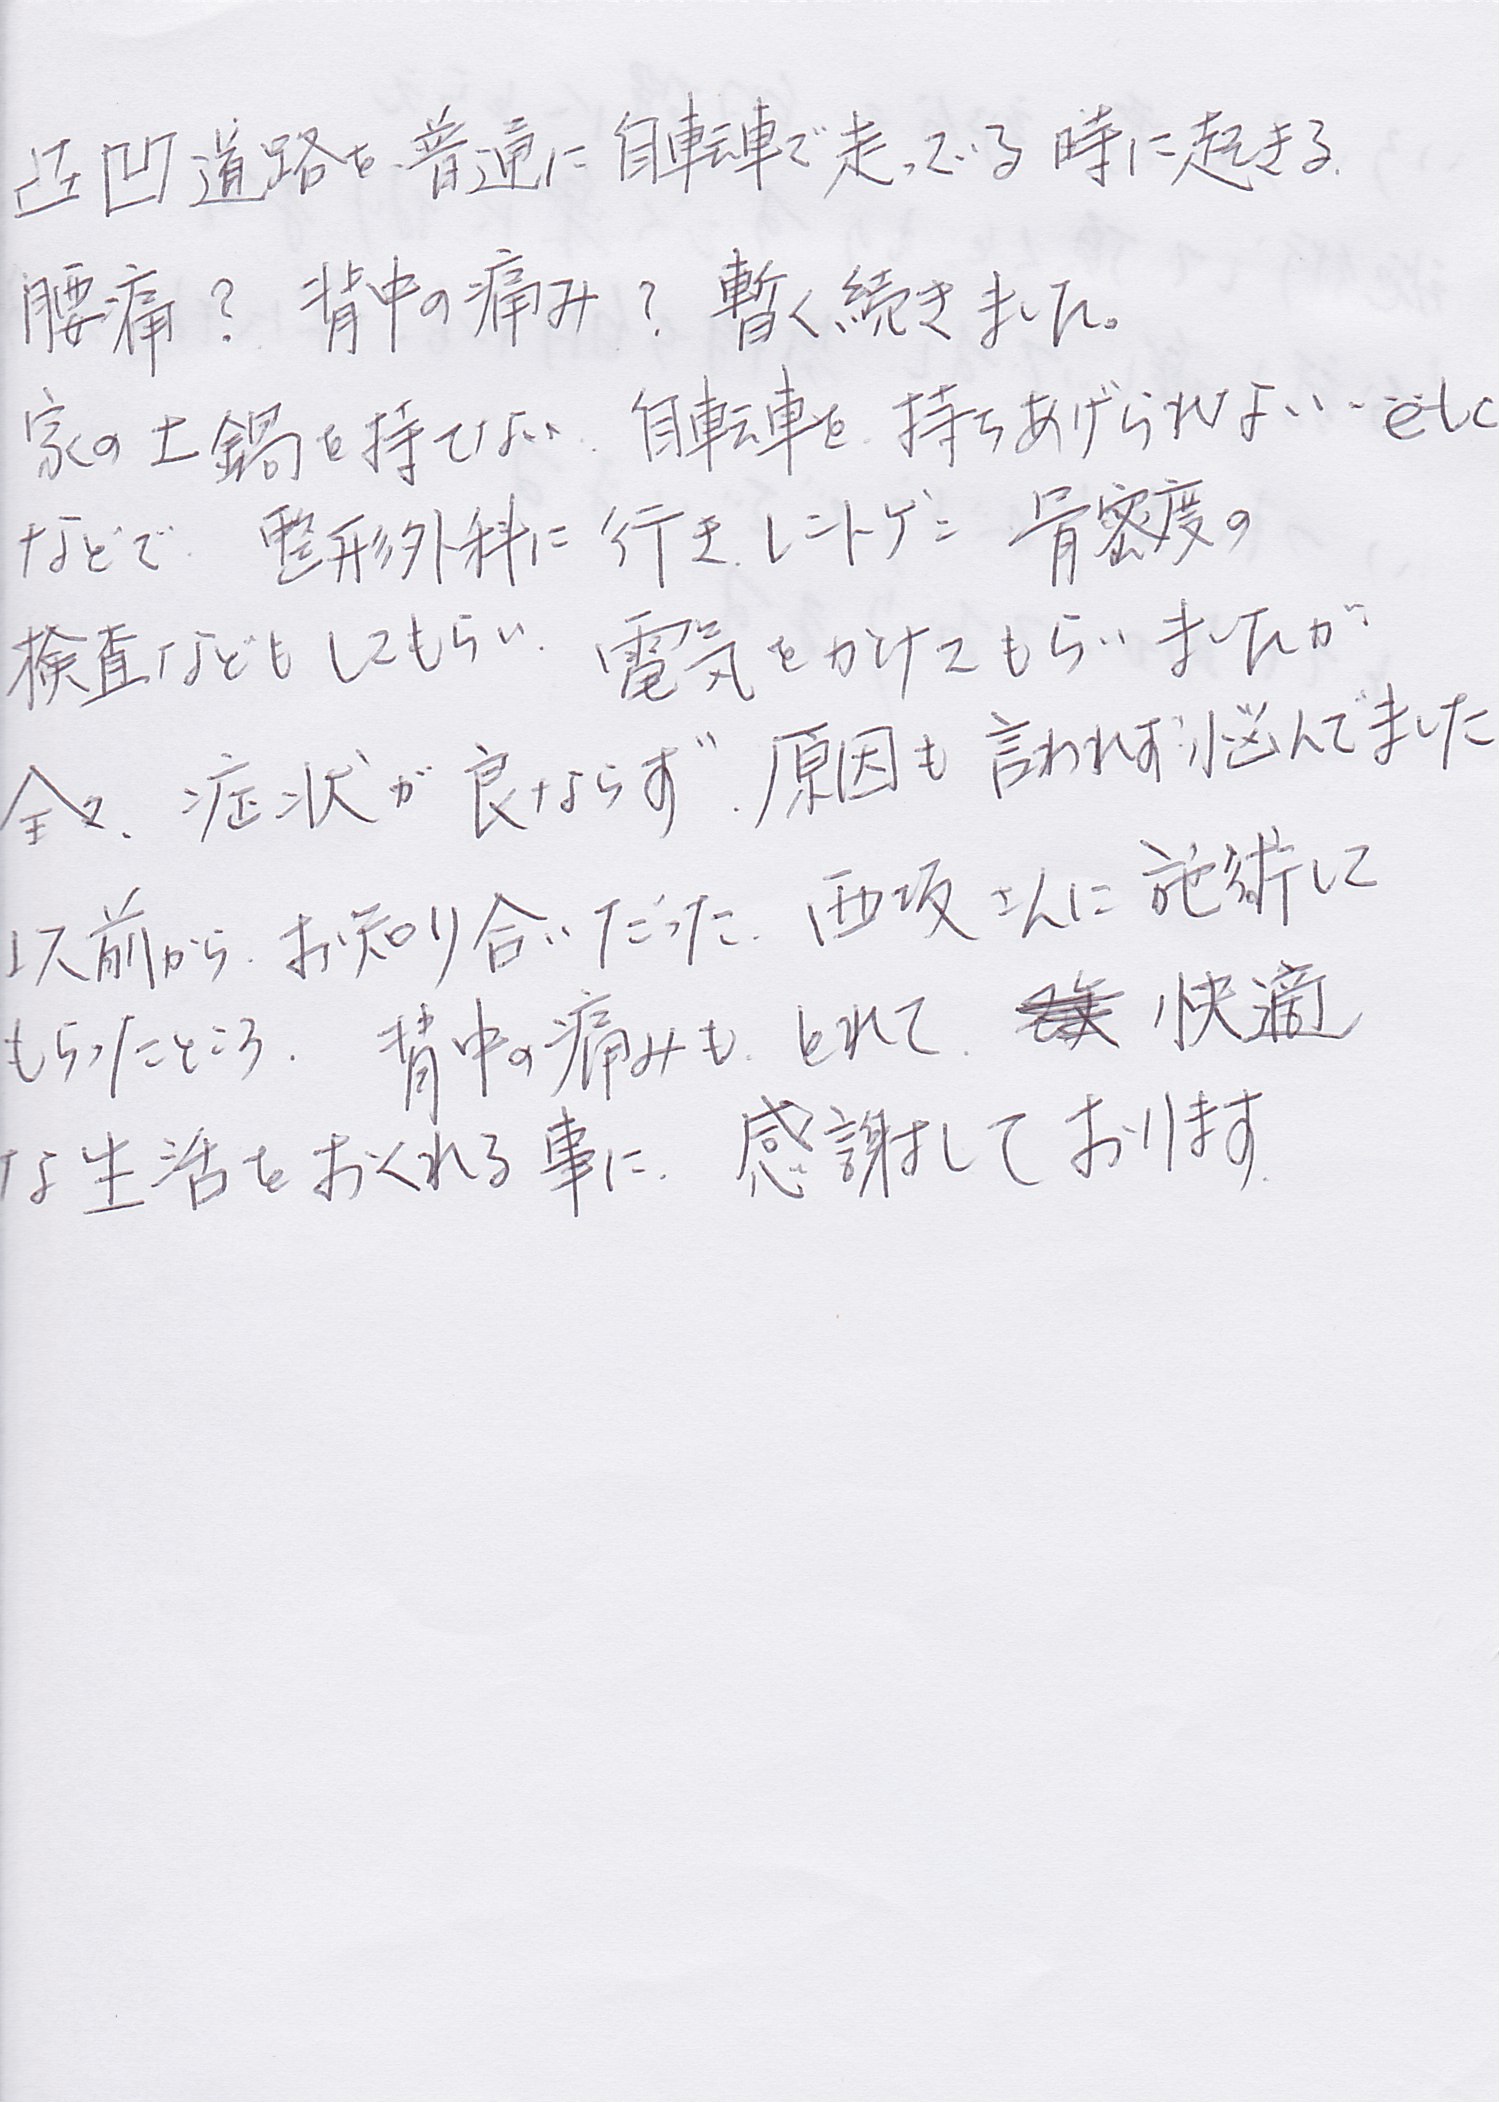 凸凹道路を普通に自転車で走っている時に起きる、
腰痛? 背中の痛み? 暫く続きました。
家の土鍋を持てない、自転車を持ちあげられない…etc
などで、整形外科に行き、レントゲン、骨密度の
検査などもしてもらい、電気をかけてもらいましたが
全々、症状が良ならず、原因も言われず、悩んでました
以前から、お知り合いだった、西坂さんに施術して
もらったところ、背中の痛みも、とれて、快適
な生活をおくれる事に、感謝しております。